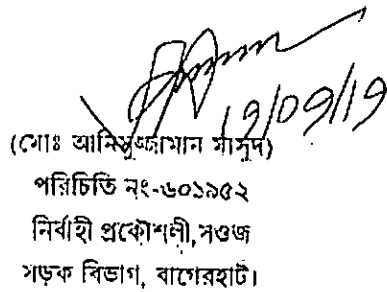 19/09/19
(মোঃ আনিসুজ্জামান মাসুদ)
পরিচিতি নং-৬০১৯৫২
নির্বাহী প্রকৌশলী,সওজ
সড়ক বিভাগ, বাগেরহাট।